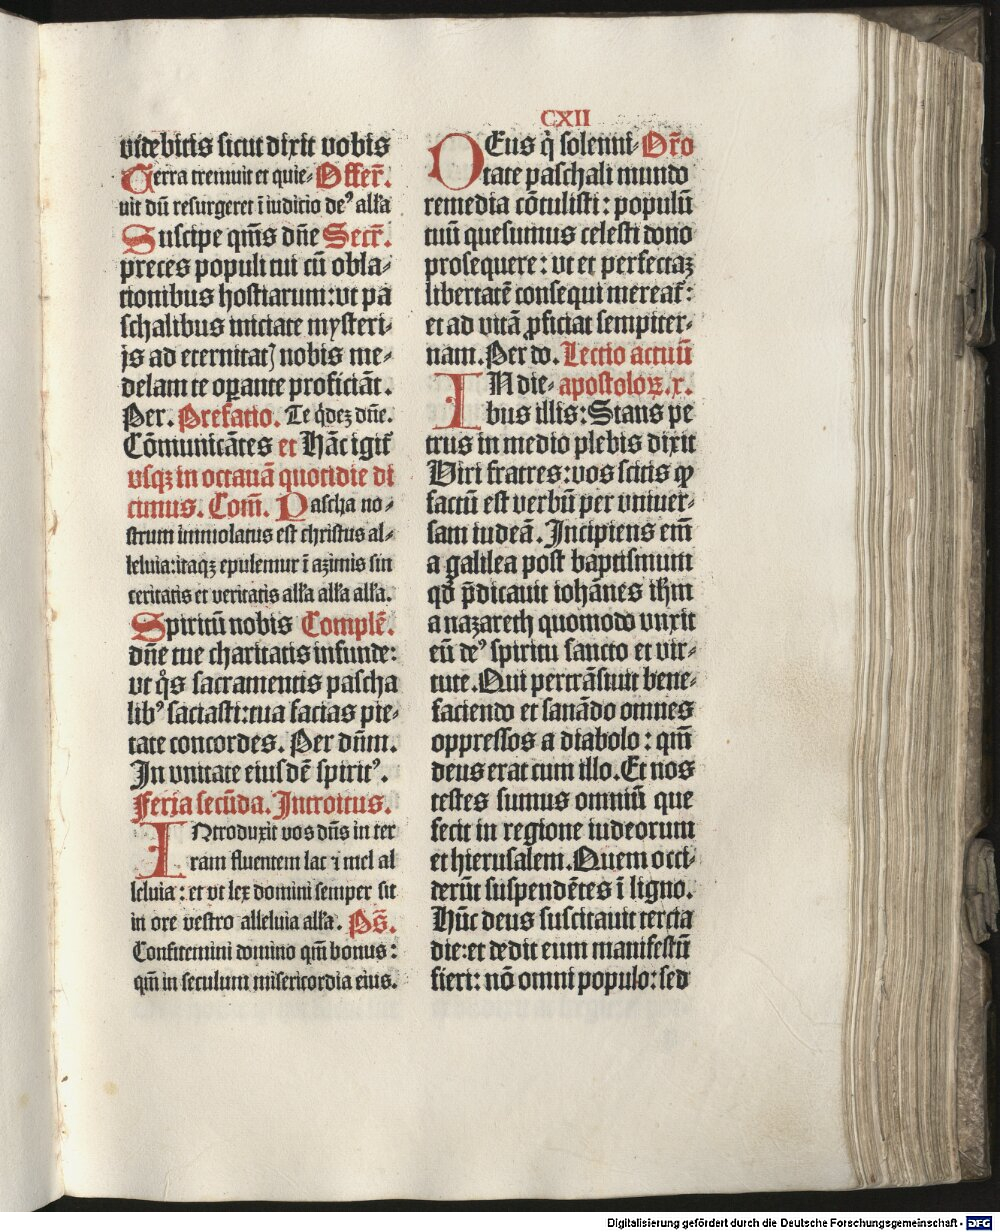 CXII
videbitis sicut dixit vobis
Terra tremuit et quie⸗ Offer̄.
uit dū resurgeret ī iudicio deꝰ all'a
Suscipe qm̄s dn̄e Secr̄.
preces populi tui cū obla⸗
tionibus hostiarum: vt pa
schalibus initiate mysteri⸗
js ad eternitatꝭ nobis me⸗
delam te oꝑante proficiāt.
Per. Prefatio. Te q̇dez dn̄e.
Cōmunicātes et Hāc igit᷑
usqꝫ in octauā quotidie di
cimus. Com̄. Pascha no⸗
strum immolatus est christus al⸗
leluia: itaqꝫ epulemur ī azimis sin
ceritatis et veritatis all'a all'a all'a.
Spiritū nobis Complē.
dn̄e tue charitatis infunde:
vt q̊s sacramentis pascha
libꝰ saciasti: tua facias pie⸗
tate concordes. Per dūm.
In vnitate eiusdē spiritꝰ.
Feria secūda. Introitus.
INtroduxit vos dn̄s in ter
ram fluentem lac ⁊ mel al
leluia: et vt lex domini semper sit
in ore vestro alleluia all'a. Ps̄.
Confitemini domino qm̄ bonus:
qm̄ in seculum misericordia eius.
DEus q̇ solenni⸗ Or̄o
tate paschali mundo
remedia cōtulisti: populū
tuū quesumus celesti dono
prosequere: vt et perfectaꝫ
libertatē consequi mereat᷑:
et ad vitā ꝓficiat sempiter⸗
nam. Per do. Lectio actuū
IN die⸗ apostoloꝝ. x.
bus illis: Stans pe
trus in medio plebis dixit
Viri fratres: vos scitis ꝙ
factū est verbū per vniuer⸗
sam iudeā. Incipiens em̄
a galilea post baptismum
qd̄ p̄dicauit iohānes ihm̄
a nazareth quomodo vnxit
eū deꝰ spiritu sancto et vir⸗
tute. Qui pertrāsiuit bene⸗
faciendo et sanādo omnes
oppressos a diabolo: qm̄
deus erat cum illo. Et nos
testes sumus omniū que
fecit in regione iudeorum
et hierusalem. Quem occi⸗
derūt suspendētes ī ligno.
Hūc deus suscitauit tercia
die: et dedit eum manifestū
fieri: nō omni populo: sed
Digitalisierung gefördert durch die Deutsche Forschungsgemeinschaft - DFG